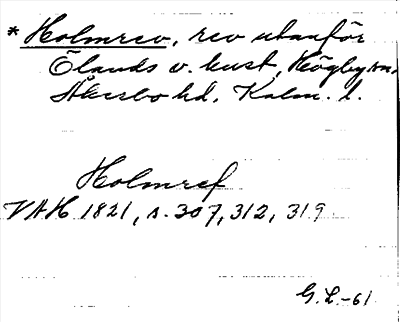 * Holmrev, rev utanför
Ölands v. kust, Högby sn,
Åkerbo hd, Kalm. l.
Holmref
VAH 1821, s. 307, 312, 319
G. L. -61